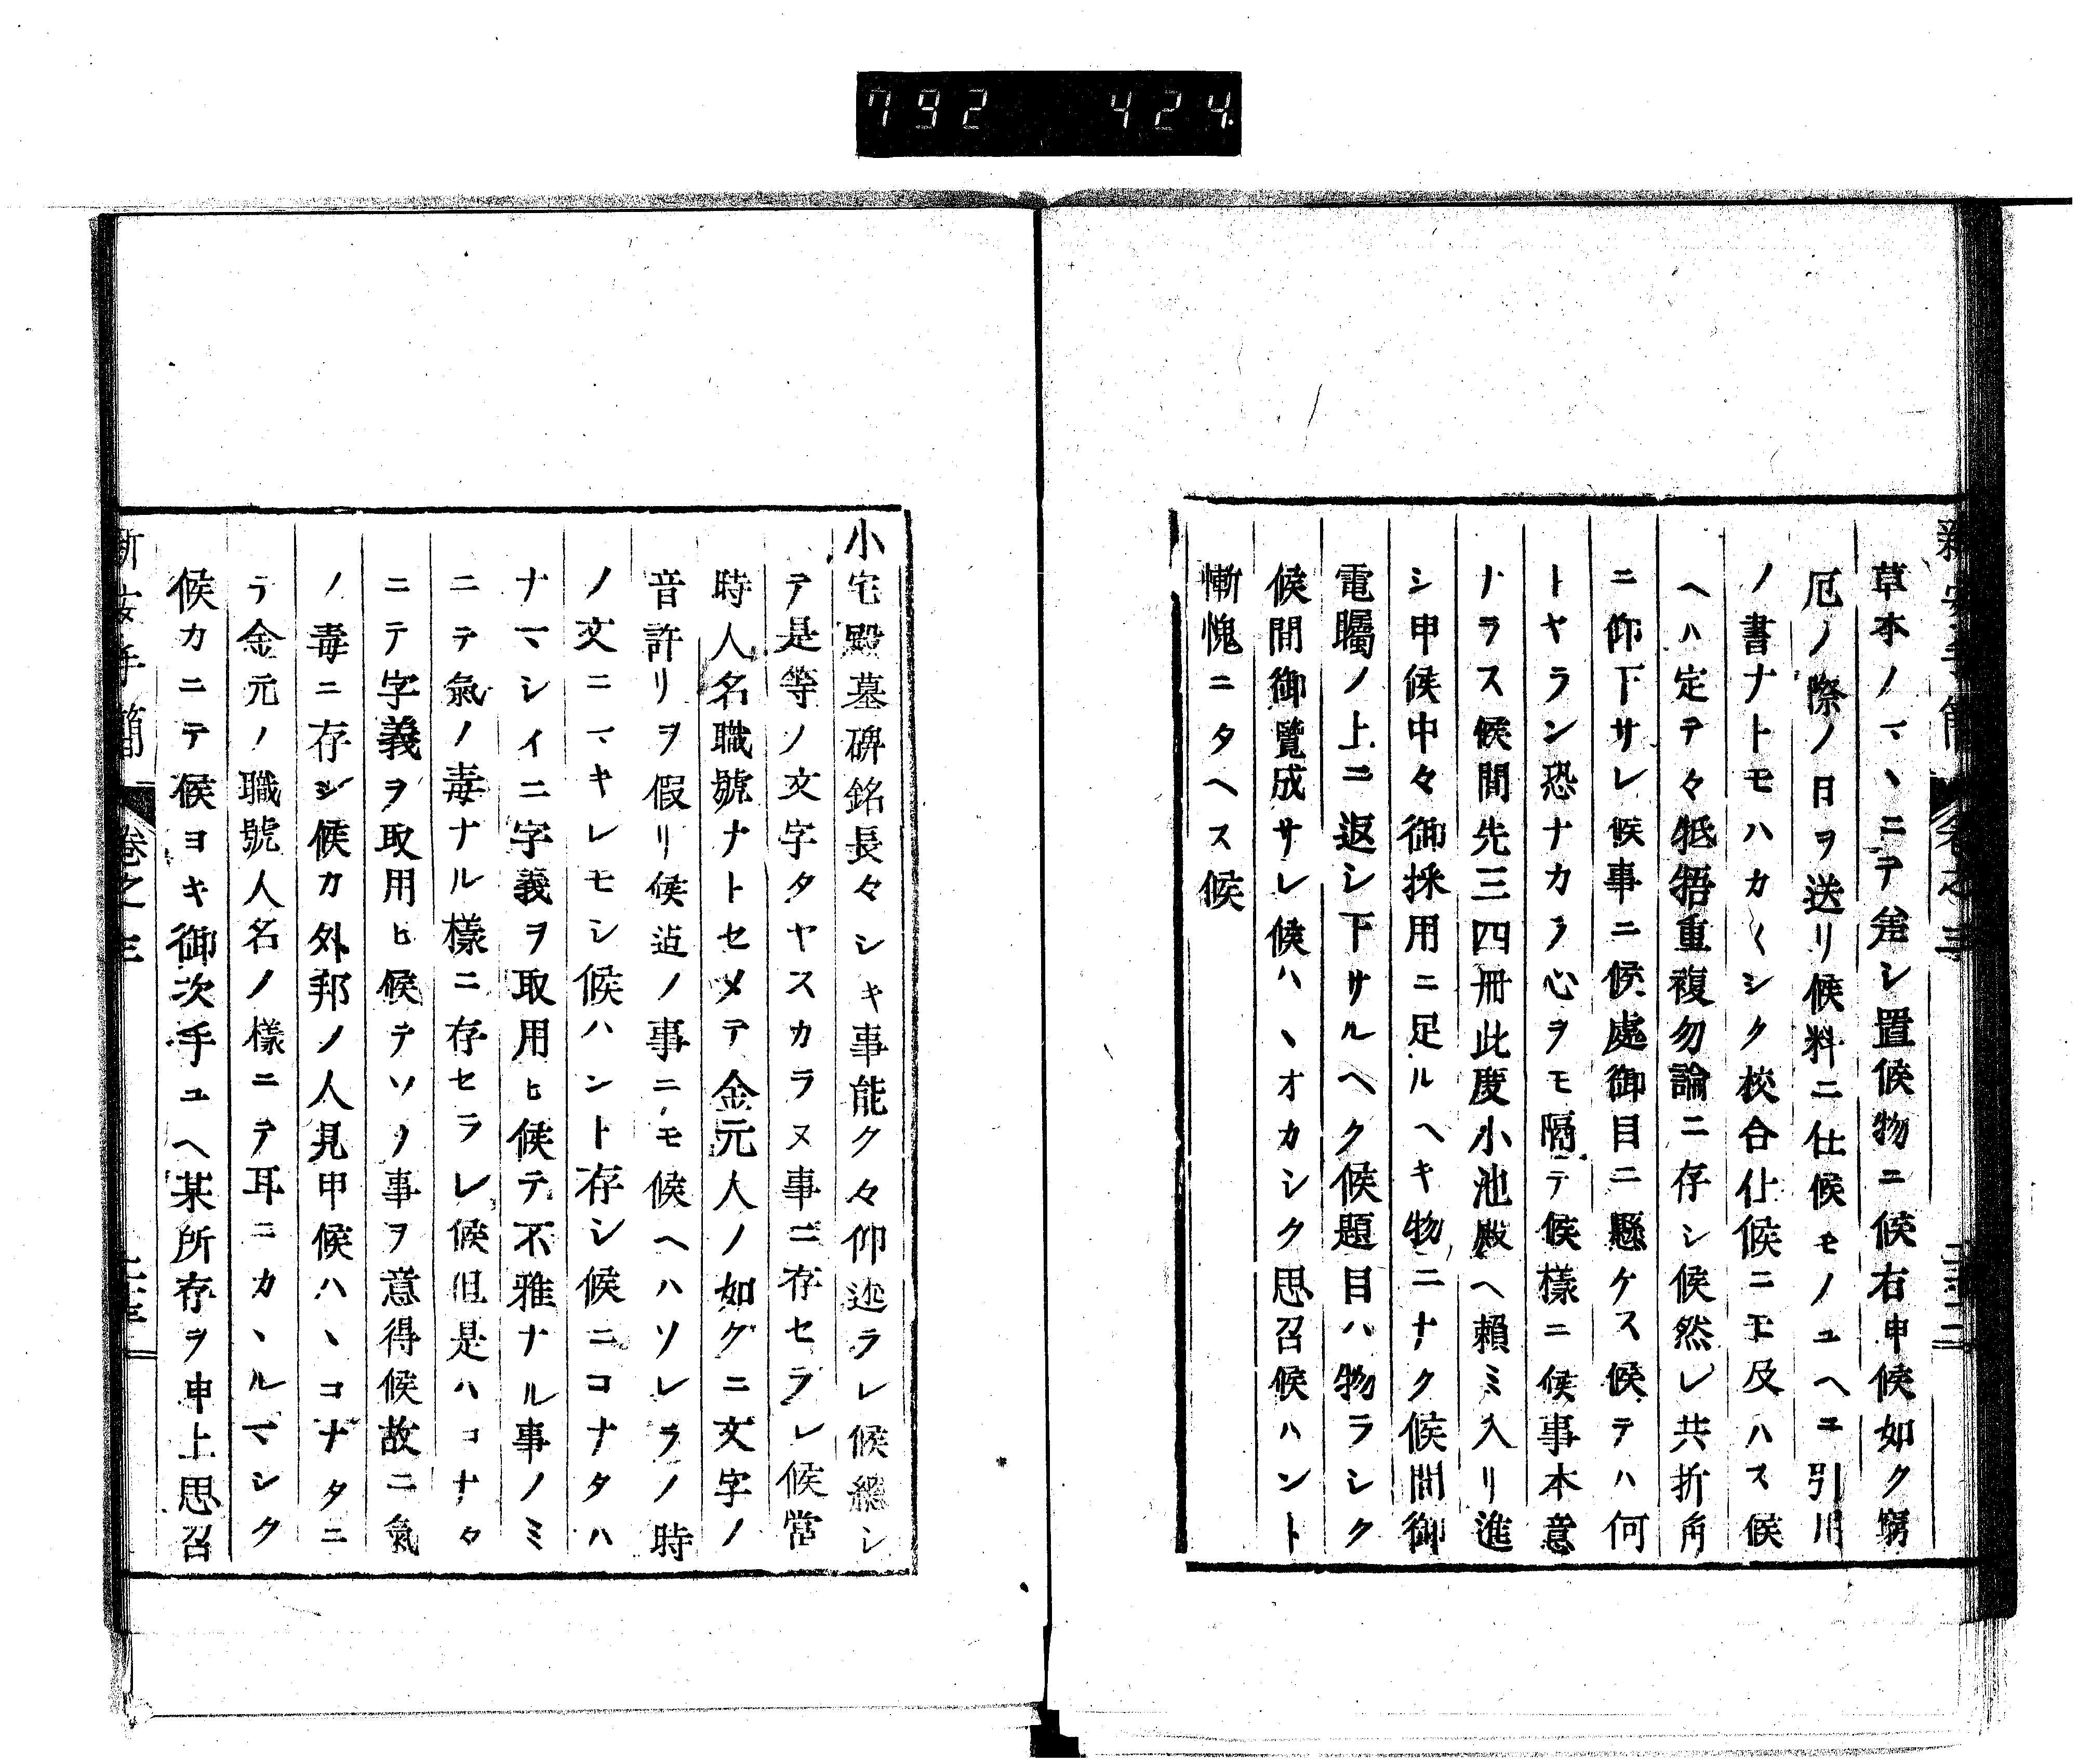 792 424
草本ノマヽニテ差シ置候物ニ候右申候如ク窮
厄ノ際ノ日ヲ送リ候料ニ仕候モノユヘニ引用
ノ書ナトモハカ〱シク校合仕候ニモ及ハス候
ヘハ定テ々牴牾重複勿論ニ存シ候然レ共折角
ニ仰下サレ候事ニ候處御目ニ懸ケス候テハ何
トヤラン恐ナカラ心ヲモ隔テ候樣ニ候事本意
ナラス候間先三四冊此度小池殿ヘ頼ミ入リ進
シ申候中々御採用ニ足ルヘキ物ニナク候間御
電矚ノ上ニ返シ下サルヘク候題目ハ物ラシク
候間御覽成サレ候ハヽオカシク思召候ハント
慚愧ニタヘス候
小宅殿墓碑銘長々シキ事能ク々仰述ラレ候總シ
テ是等ノ文字タヤスカラヌ事ニ存セラレ候當
時人名職號ナトセメテ金元人ノ如クニ文字ノ
音許リヲ假リ候迠ノ事ニモ候ヘハソレラノ時
ノ文ニマキレモシ候ハント存シ候ニコナタハ
ナマシイニ字義ヲ取用ヒ候テ不雅ナル事ノミ
ニテ氣ノ毒ナル樣ニ存セラレ候但是ハコナタ
ニテ字義ヲ取用ヒ候テソノ事ヲ意得候故ニ氣
ノ毒ニ存シ候カ外邦ノ人見申候ハヽコナタニ
テ金元ノ職號人名ノ樣ニテ耳ニカヽルマシク
候カニテ候ヨキ御次手ユヘ某所存ヲ申上思召
新安手簡 卷之三